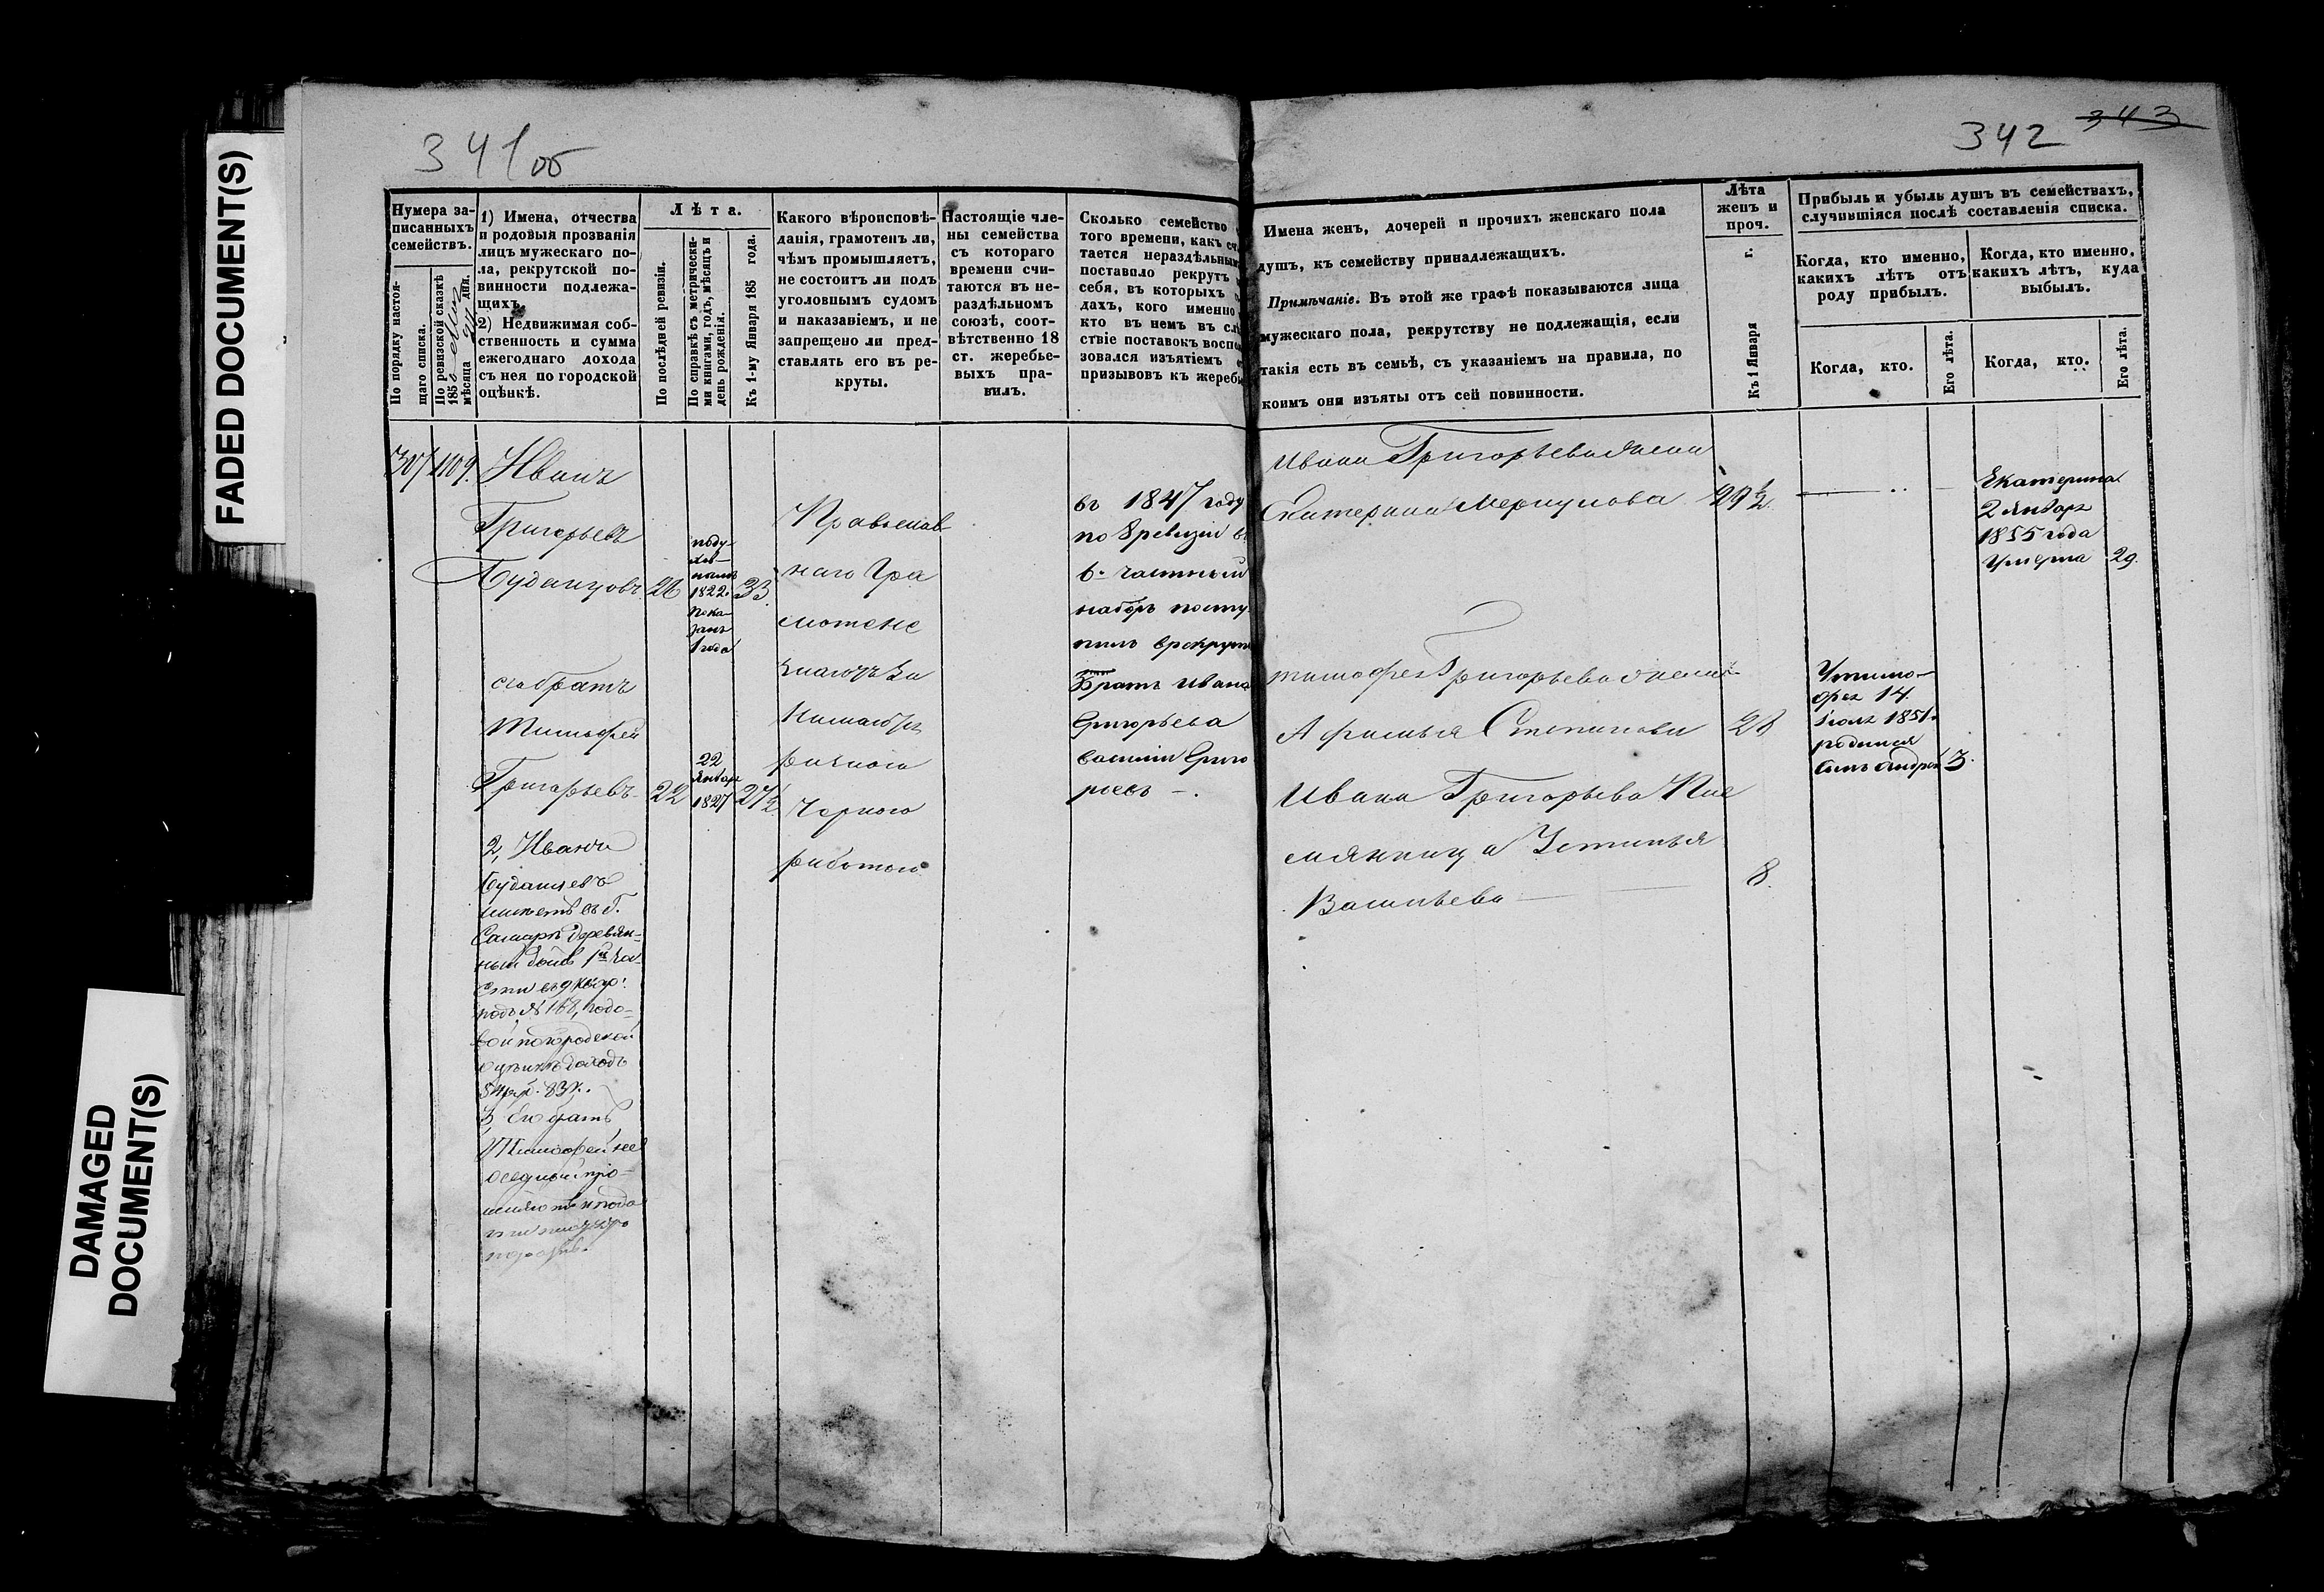 FADED DOCUMENT(S)
DAMAGED
DOCUMENT(S)
341об
Нумера за-
писанныхъ
семействъ.
По порядку настоя-
щаго списка.
По ревизской сказкѣ
185 мѣсяца дня.
1) Имена, отчества
и родовыя прозванія
лицъ мужескаго по-
ла, рекрутской по-
винности подлежа-
щихъ.
2) Недвижимая соб-
ственность и сумма
ежегоднаго дохода
съ нея по городской
оцѣнкѣ.
Лѣта.
По послѣдней ревизіи.
По справкѣ съ метрически-
ми книгами, годъ, мѣсяцъ и
день рожденія.
Къ 1-му Января 185 года.
Какого вѣроисповѣ-
данія, грамотенъ ли,
чѣмъ промышляетъ,
не состоитъ ли подъ
уголовнымъ судомъ
и наказаніемъ, и не
запрещено ли пред-
ставлять его въ ре-
круты.
Настоящіе чле-
ны семейства
съ котораго
времени счи-
таются въ не-
раздѣльномъ
союзѣ, соот-
вѣтственно 18
ст. жеребье-
выхъ пра-
вилъ.
Сколько семейство
того времени, какъ сч
тается нераздѣльным
поставило рекрутъ
себя, въ которыхъ
дахъ, кого именно
кто въ немъ въ сл
ствіе поставокъ воспо
зовался изъятіемъ
призывовъ къ жереб
307 1109. Иванъ
Григорьевъ
Буданцовъ 26
1822.
пока
занъ
1 года
33
Православ
наго Гра
мотене
знаютъ За
нимается
разною
Черною
работою
въ 1847 году
по 8 ревизіи въ
6й частный
наборъ посту
пилъ врекруты
Братъ Ивана
Григорьева
Василій Григо
рьевъ —.
его братъ
Тимофей
Григорьевъ 22
22
Января
1827
27½
2, Ивана
Буданцевъ
имѣетъ въ г.
Самаръ деревян-
ный домъ 1й ча-
сти въ 9 кварт.
подъ № 168, годо-
вой погородской
оцѣнкѣ доходъ
83к.
3, Его братъ
Тимофей не
342 343
Имена женъ, дочерей и прочихъ женскаго пола
душъ, къ семейству принадлежащихъ.
Примѣчаніе. Въ этой же графѣ показываются лица
мужескаго пола, рекрутству не подлежащія, если
такія есть въ семьѣ, съ указаніемъ на правила, по
коимъ они изъяты отъ сей повинности.
Лѣта
женъ и
проч.
Къ 1 Января г.
Прибыль и убыль душъ въ семействахъ,
случившіяся послѣ составленія списка.
Когда, кто именно,
какихъ лѣтъ отъ
роду прибылъ.
Когда, кто именно,
какихъ лѣтъ, куда
выбылъ.
Когда, кто.
Его лѣта.
Когда, кто.
Его лѣта.
Ивана Григорьева жена
Екатерина Меркулова 29½
Екатерина
2 Января
1855 года
Умерла 29.
тимофея Григорьева жена
Афимья Степанова 28
Утимо-
фея 14
Іюля 1851
родился
Сынъ Андрей 3.
Ивана Григорьева Пле
мянница Устинья
Васильева 8.